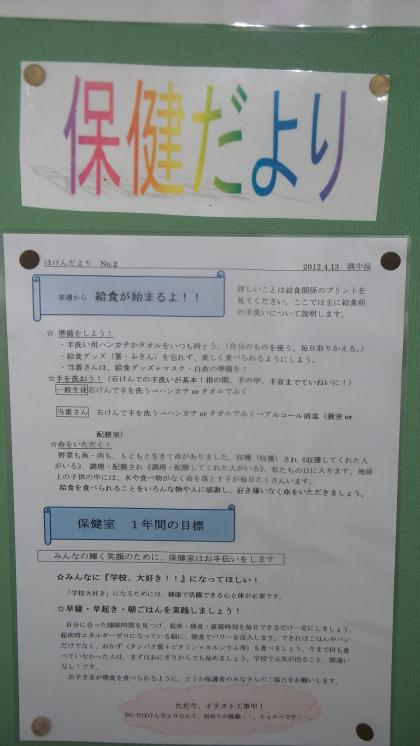 保健だより
ほけんだより　No.2　2012.4.13
来週から　給食が始まるよ！！
詳しいことは給食関係のプリントを
見てください。ここでは主に給食前
の手洗いについて説明します。
☆ 準備をしよう！
・手洗い用ハンカチかタオルをいつも持とう。（自分のものを使う、毎日取りかえる。）
・給食グッズ（箸・ふきん）を忘れず、楽しく食べられるようにしよう。
・当番さんは、給食グッズ＋マスク・白衣の準備を！
☆手を洗おう！（石けんでの手洗いが基本！指の間、手の甲、手首までていねいに！）
一般生徒 石けんで手を洗う→ハンカチ or タオルでふく
当番さん　石けんで手を洗う→ハンカチ or タオルでふく→アルコール消毒（教室 or
配膳室）
☆命をいただく！
野菜も魚・肉も、もともと生きて命がありました。収穫（収獲）され《収穫してくれた人
がいる》、調理・配膳され《調理・配膳してくれた人がいる》、私たちの口に入ります。地球
上の子供の中には、水や食べ物がなく命を落とす子が毎日たくさんいます。
給食を食べられることをいろんな物や人に感謝し、好き嫌いなく命をいただきましょう。
保健室　１年間の目標
みんなの輝く笑顔のために、保健室はお手伝いをします
☆みんなに『学校、大好き！！』になってほしい！
「学校大好き」になるためには、健康で活躍できる心と体が必要です。
☆早寝・早起き・朝ごはんを実践しましょう！
自分に合った睡眠時間を見つけ、起床・朝食・就寝時刻を毎日できるだけ一定にしましょう。
起床時エネルギーゼロになっている脳に、朝食でパワーを注入します。できればごはんやパン
だけでなく、おかず（タンパク質＋ビタミン＋カルシウム等）も食べましょう。今まで何も食
べていなかった人は、まずはおにぎりからでも始めましょう。学校で元気が出ること、間違い
なし！です。
お子さまが朝食を食べられるように、どうか保護者のみなさんのご協力をお願いします。
ただ今、イラスト工事中！
PCでほけんだよりなんて、初めての挑戦・・、